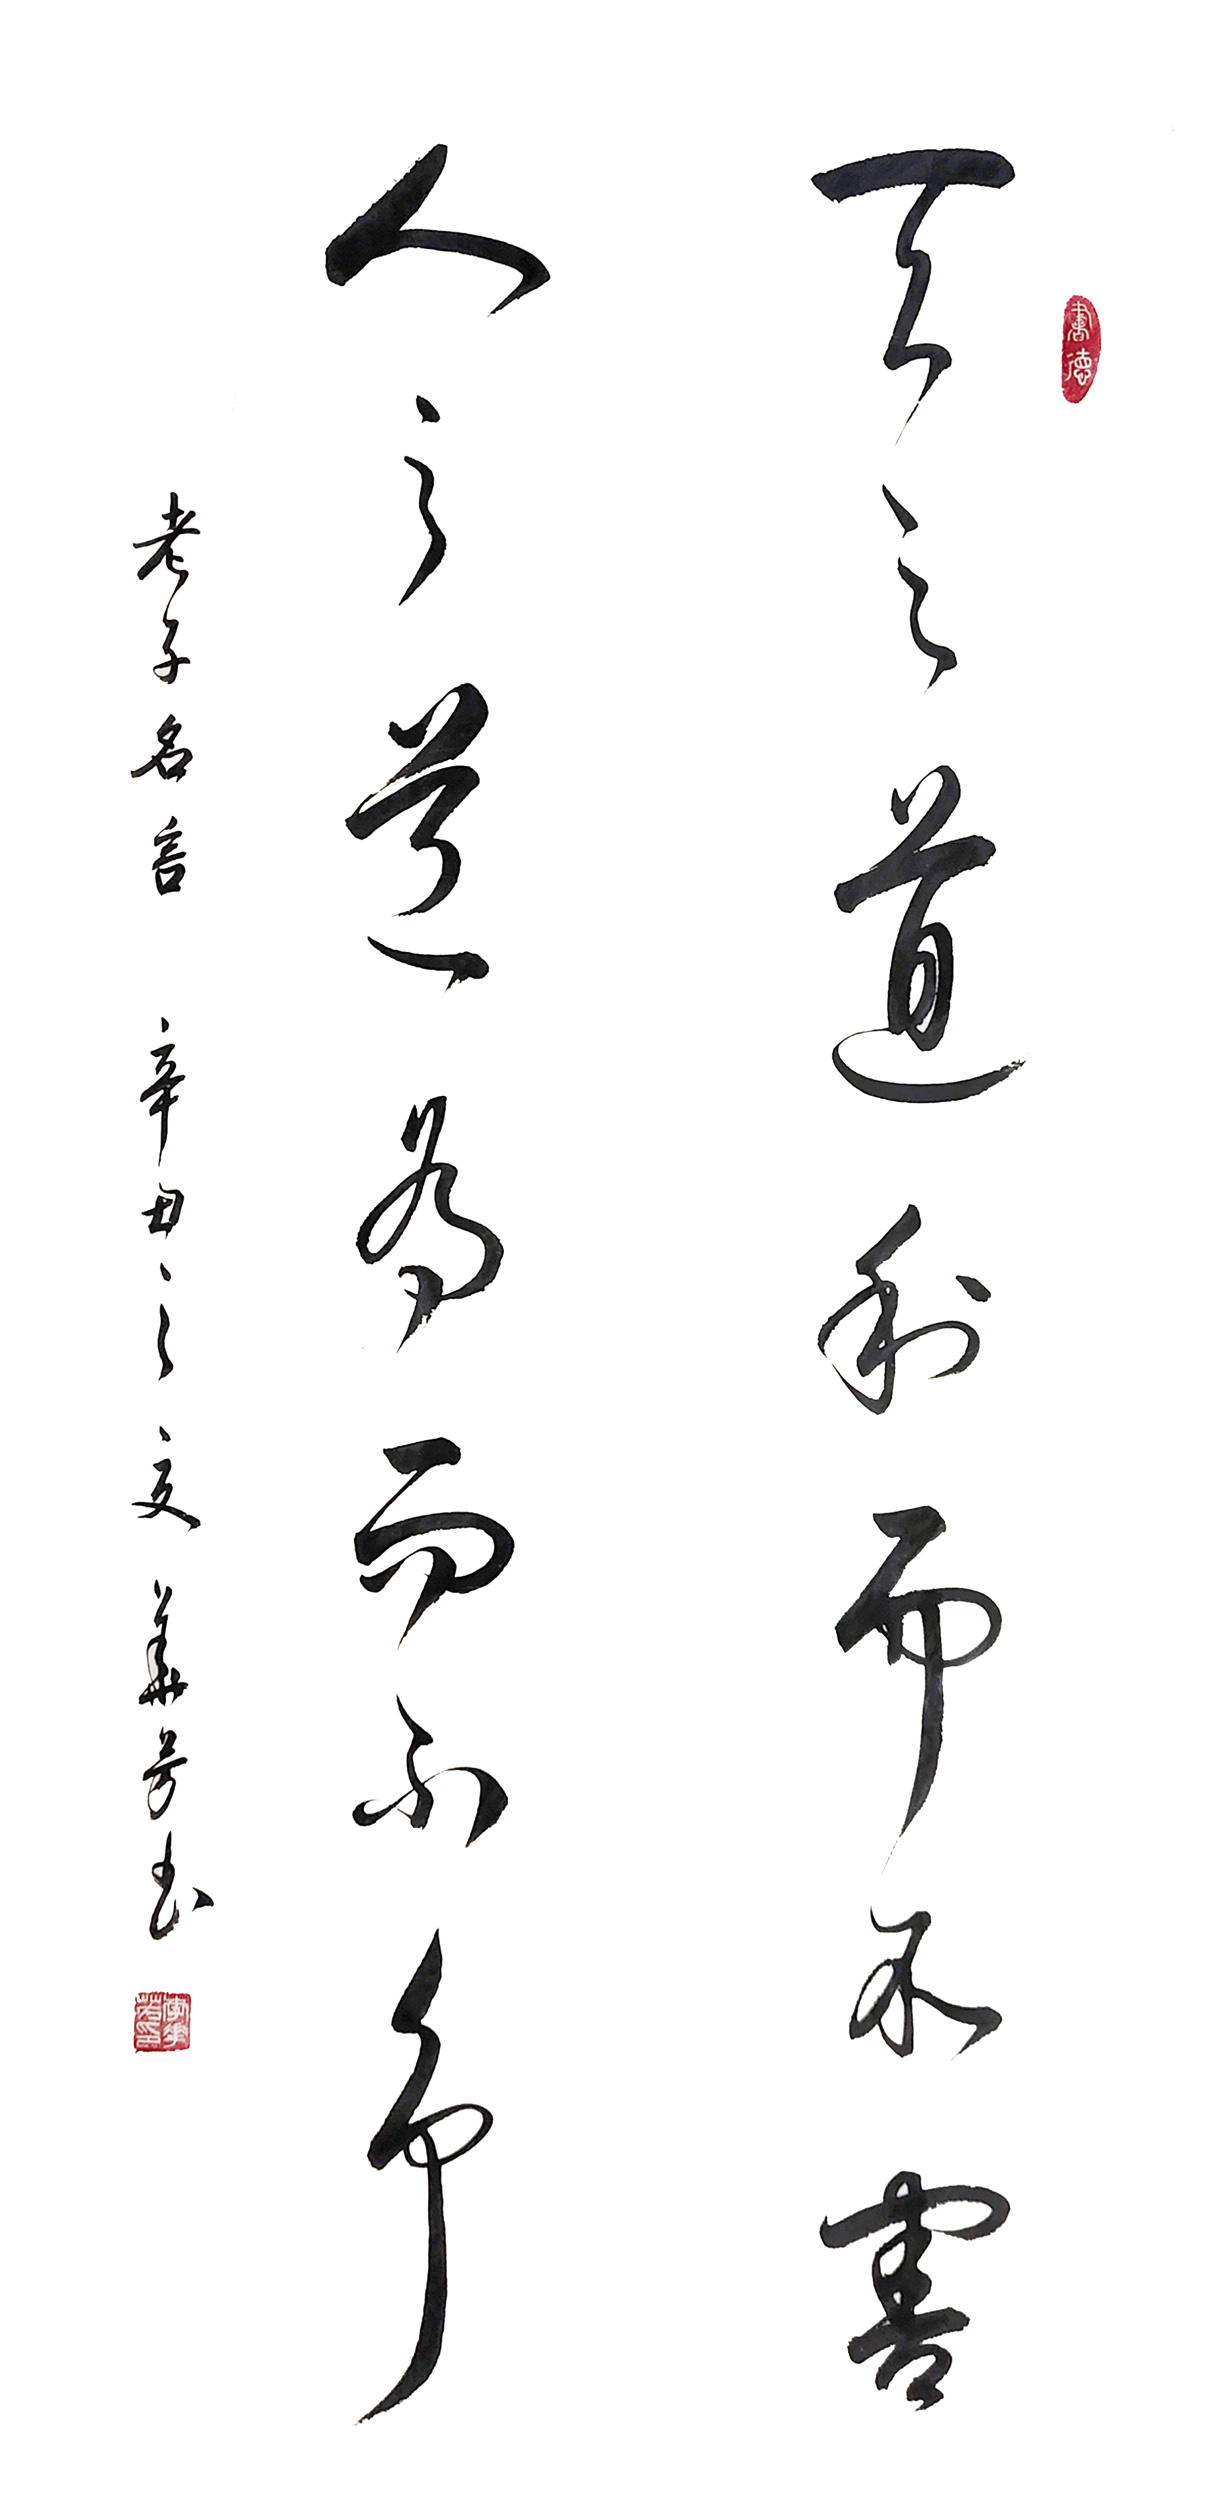 天之道利而不害
人之道为而不争
老子名言 辛丑之夏 华芳书